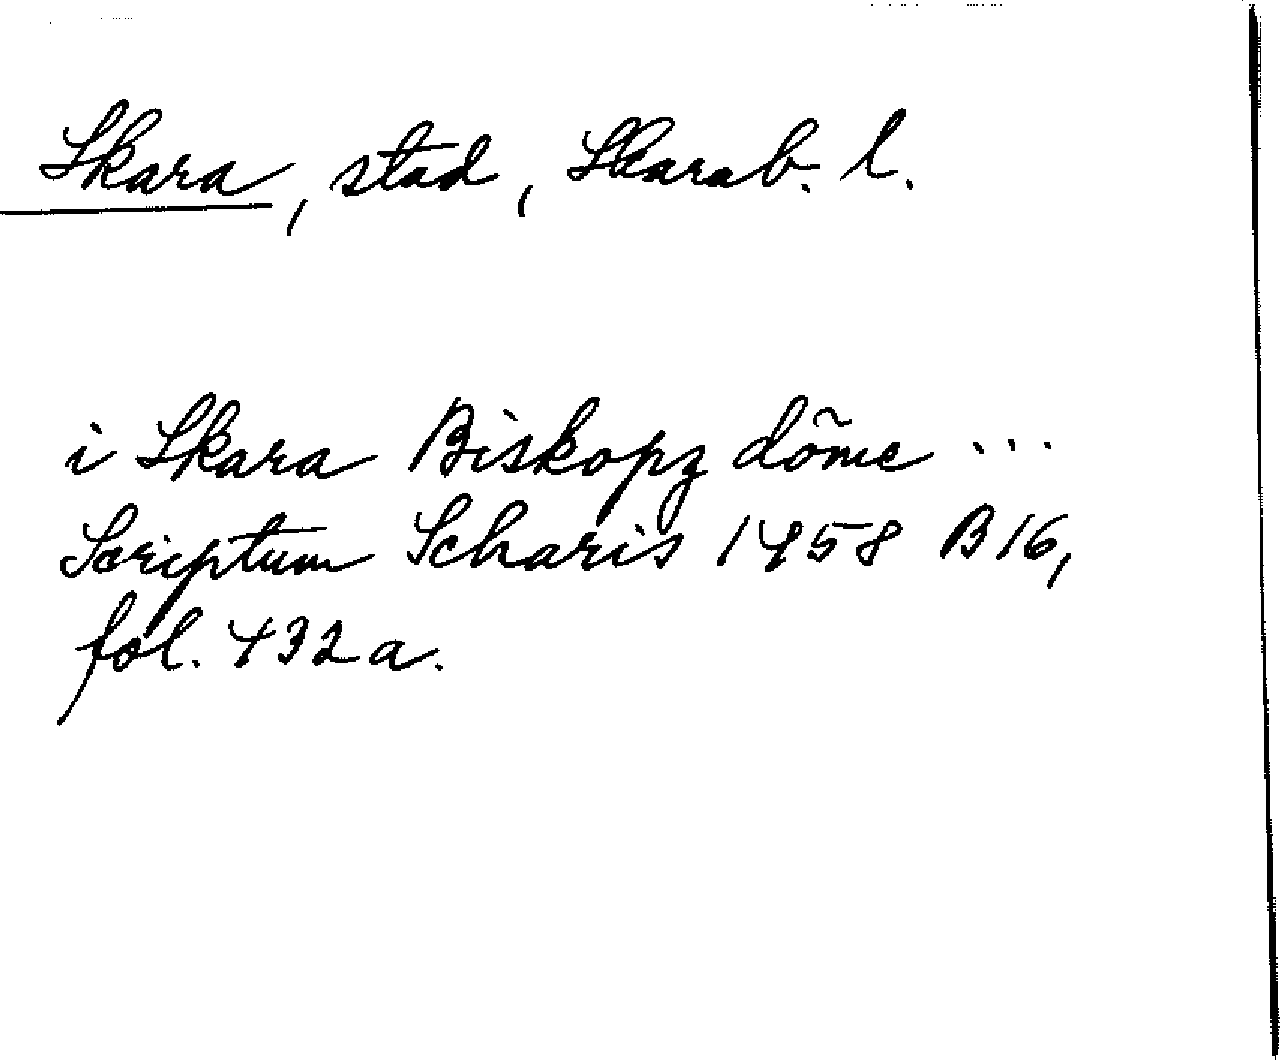 Skara, stad, Skarab. l.
i Skara Biskopz dõme ...
Scriptum Scharis 1458 B 16,
fol. 432 a.